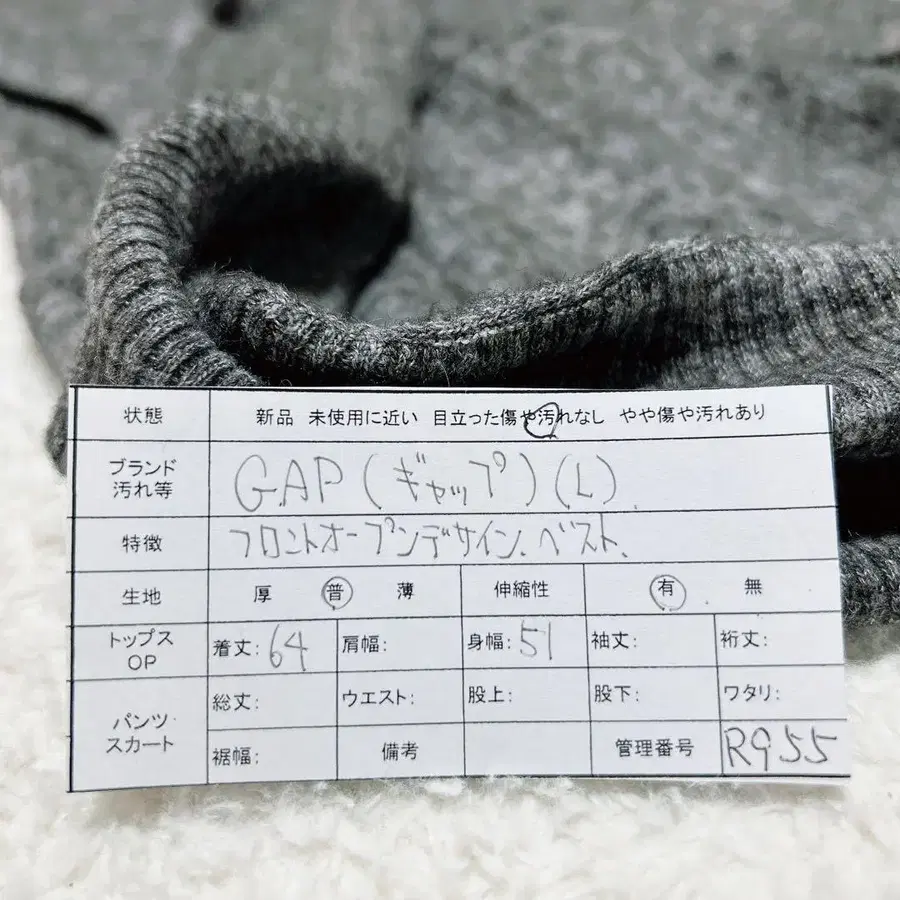 状態 新品 未使用に近い 目立った傷や汚れなし やや傷や汚れあり
ブランド 汚れ等 GAP (ギャップ) (L)
特徴 フロントオープンデザイン、ベスト、
生地 厚 普 薄 伸縮性 有 無
トップス OP 着丈: 64 肩幅: 身幅: 51 袖丈: 裄丈:
パンツ スカート 総丈: ウエスト: 股上: 股下: ワタリ:
裾幅: 備考 管理番号 R955